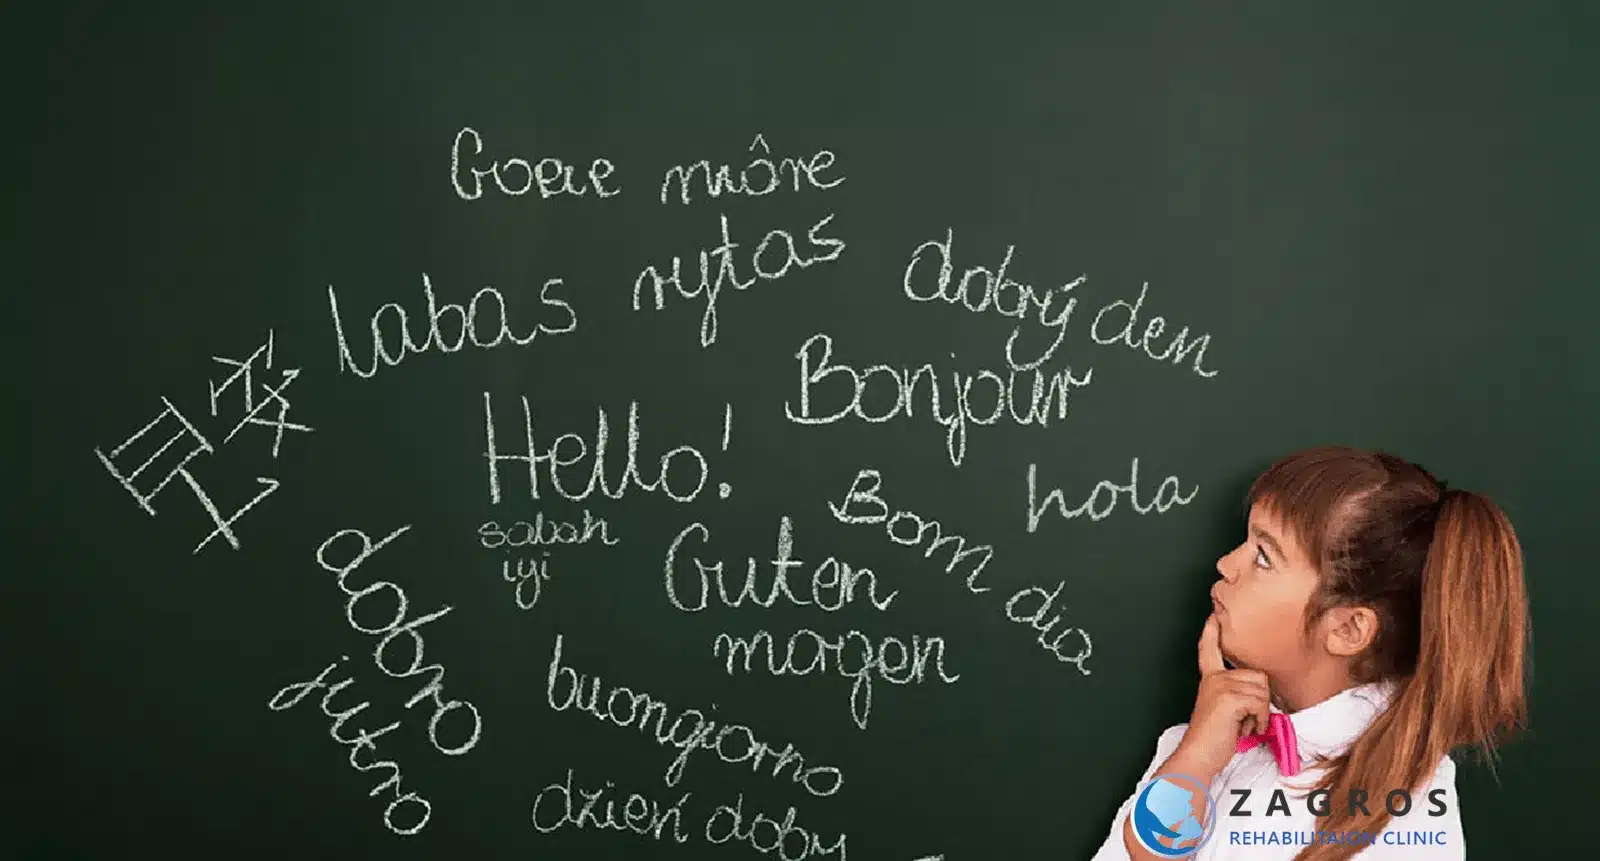 Goeie môre
labas rytas
dobrý den
Bonjour
Hello!
hola
sabah
iyi
Bom dia
Guten
morgen
dobro
jutro
buongiorno
dzień dobry
ZAGROS
REHABILITAION CLINIC